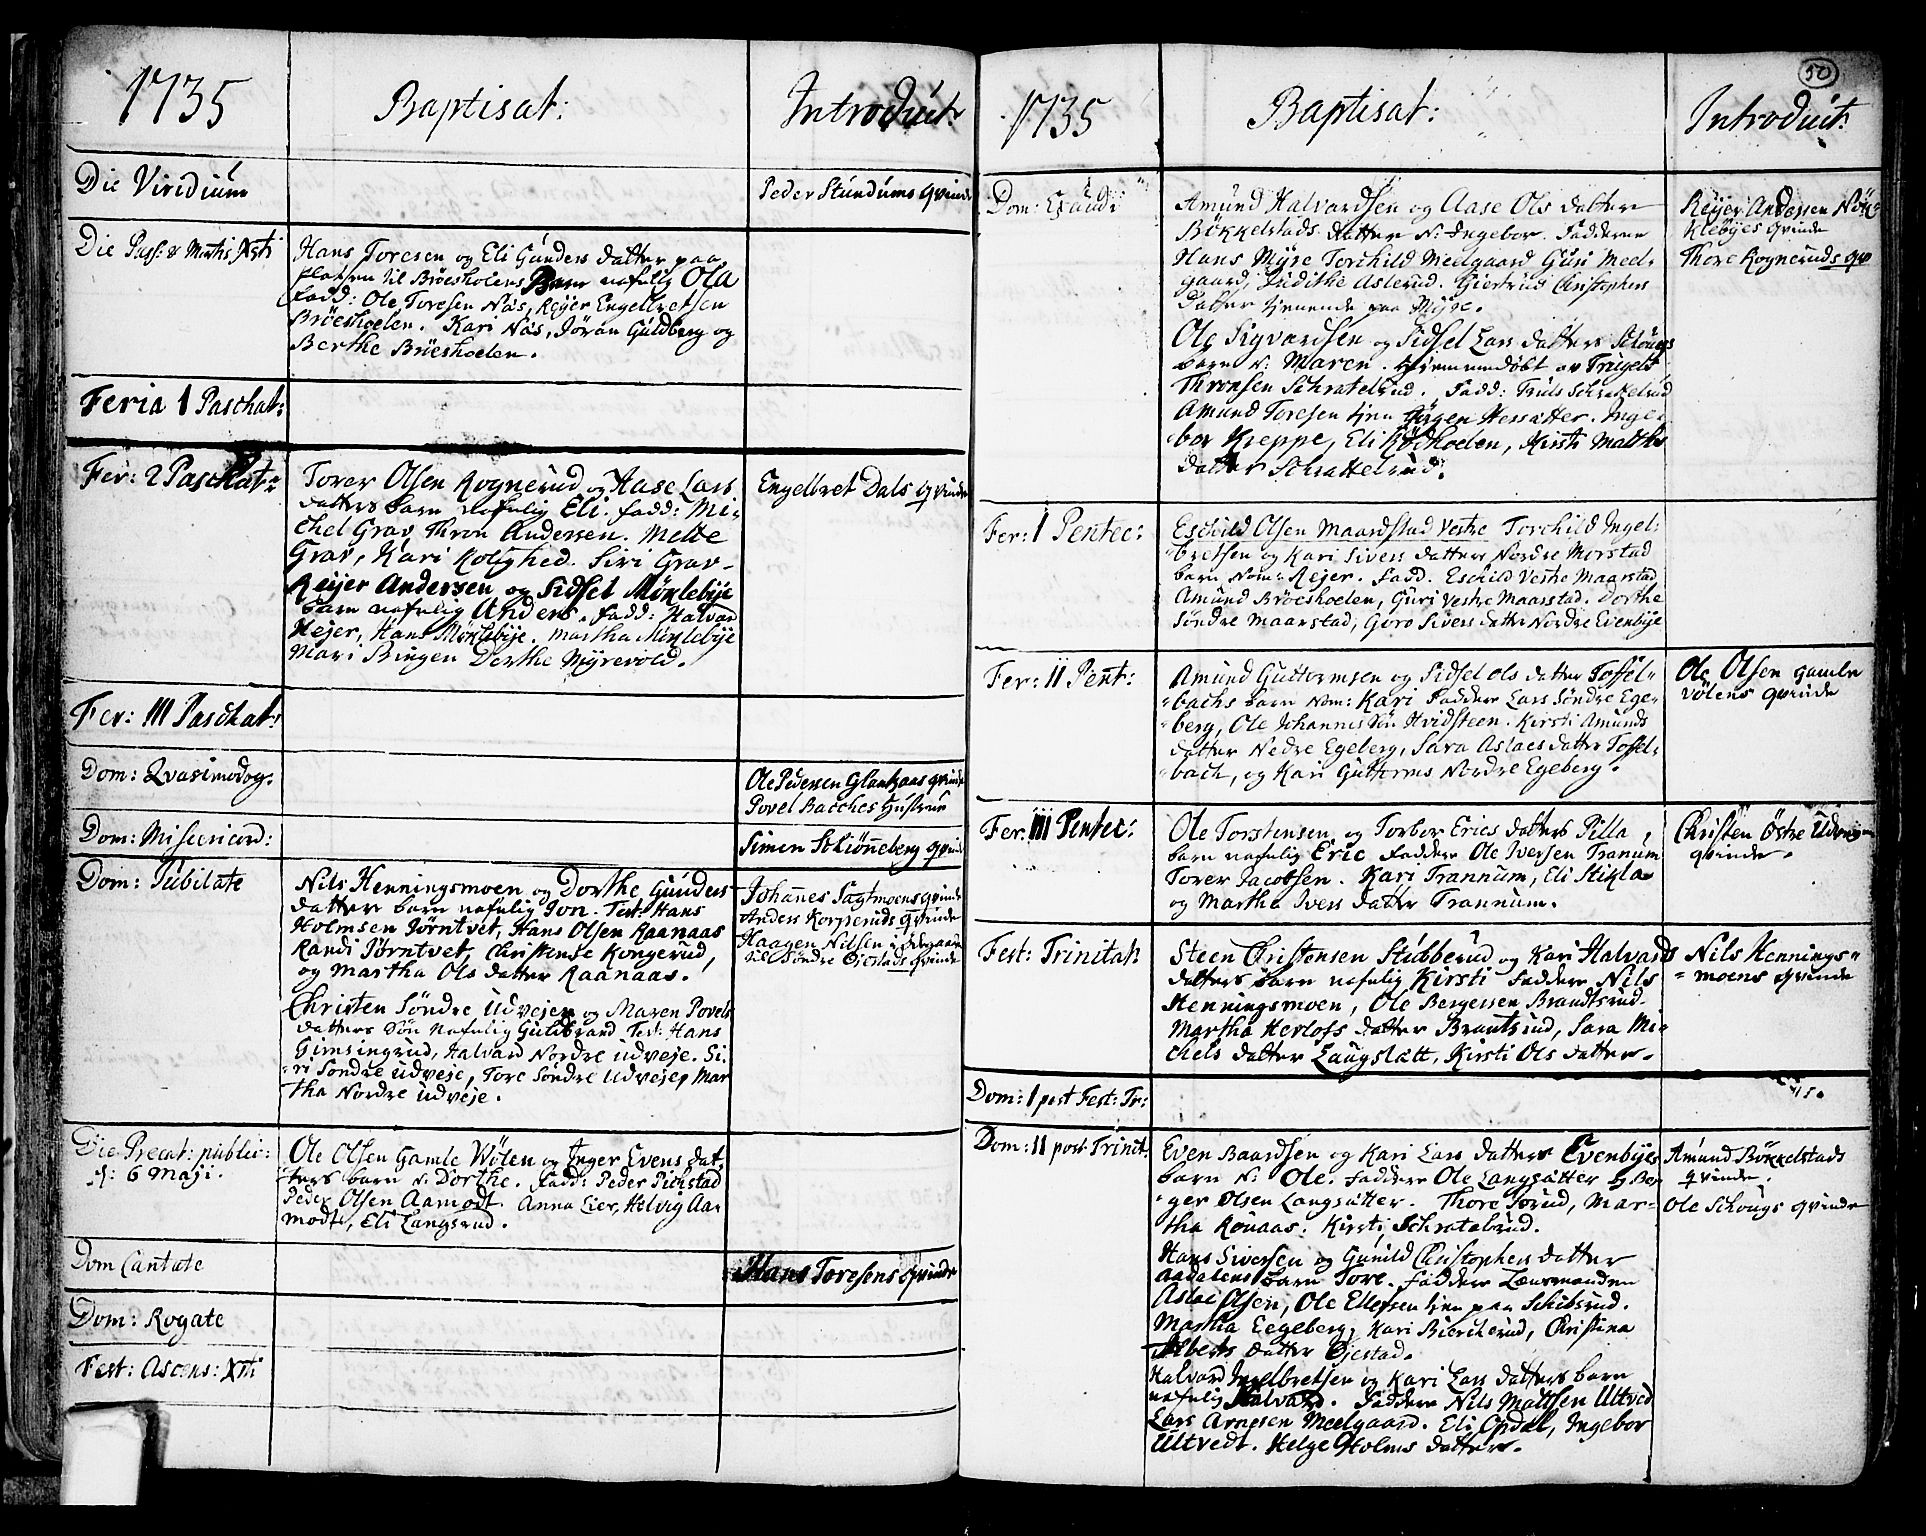 1735
Baptisat:
Introduct:
Die Viridium
Peder Stundums qvinde
Die Pass: & Mortis Xsti
Hans Toresen og Eli Gunders datter paa
Platsen til Bröesholens Barn nafnlig Ola
fadd: Ole Toresen Näs, Reyer Engelbretsen
Bröeshoelen. Kari Näs, Jöran Guldberg og
Berthe Bröeshoelen.
Feria 1 Paschat:
Fer: 2 Paschat:
Torer Olsen Rognerud og Aase Lars
datters barn nafnlig Eli. fadd: Mi-
chel Grav, Thron Andersen. Mette
Grav, Kari Kolshed. Siri Grav-
Reijer Andersen og Sidsel Möxlebye
barn nafnlig Anders. fadd: Halvor
Hejer, Hans Möxlebije. Martha Möxlebije
Mari Bingen Dorthe Myrevold.
Engelbret Dals qvinde
Fer: III Paschat:
Dom: Qvasimodog.
Ole Pedersen Glaatzaas qvinde
Povel Bacches Hustrue
Dom: Misericord:
Simen Schiönneberg qvinde
Dom: Jubilate
Nils Henningsmoen og Dorthe Gunders
datters barn nafnlig Jon. Test: Hans
Holmsen Jörntvet, Hans Olsen Raanaas
Randi Jörntvet, Christense Kongerud,
og Martha Ols datter Raanaas.
Christen Söndre Udvejen og Maren Povels
datters Sön nafnlig Guldbrand Test: Hans
Gimsingrud, Halvard Nordre udveje. Si-
ri Söndre udveje, Tore Söndre Udveje, Mar
tha Nordre udveje.
Johannes Sagtmoens qvinde
Anders Korperuds qvinde
Haagen Nilsen i Ödegaard
til Söndre Öjestads qvinde
Die Precat: public:
d: 6 Maji.
Ole Olsen Gamle Wölen og Inger Evens dat-
ters barn N: Dorthe. fadd: Peder Pichstad
Peder Olsen Aamodt. Anna Lier, Helvig Aa-
modt, Eli Langsrud.
Dom Cantate
Hans Toresens qvinde
Dom: Rogate
Fest: Ascens: Xsti
50
1735
Baptisat:
Introduct:
Dom: Exaudi
Amund Halvardsen og Aase Ols datter
Bökkelstads datter N: Ingebor. Faddere
Hans Myre Torchild Meelgaard Guri Meel-
gaard, Judithe Aslerud. Giertrud Christophers
datter tjenende paa Myre.
Ole Sigvardsen og Sidsel Lars datters Schougs
barn N: Maren. hjemmedöbt av Trugels
Thronsen Schratelrud. Fadd: Truls Schratelrud
Amund Toresen tjen Jörgen Hessätter. Inge-
bor Kreppe, Eli Rödhoelen, Kirsti Mathis
datter Schrattelrud.
Reijer Andersen Möx-
klebyes qvinde
Thore Rogneruds qv
Fer: I Pentec:
Eschild Olsen Maardstad Vestre Torchild Ingel-
bretsen og Kari Sivers datters Nordre Morstad
barn Nom: Rejer. Fadd. Eschild Vestre Maarstad
Amund Bröeshoelen, Guri Vestre Maarstad. Dorthe
Söndre Maarstad, Goro Sivers datter Nordre Evenbye
Fer: II Pent:
Amund Guttormsen og Sidsel Ols datter Toffel-
bachs barn Nom: Kari Faddere Lars Söndre Ege-
berg, Ole Johannis Sön Hvidsteen. Kirsti Amunds
datter Nedre Egeberg, Sara Aslacs datter Toffel-
bach, og Kari Guttorms Nordre Egeberg.
Ole Olsen gamle
Völens qvinde
Fer: III Pentec:
Ole Torstensen og Torbor Erics datters Pilla
barn nafnlig Eric Faddere Ole Iversen Tranum
Torer Jacobsen. Kari Trannum, Eli Stikla
og Martha Ivers datter Trannum.
Christen Östre Udvejen
qvinde.
Fest: Trinitat:
Steen Christensen Stubberud og Kari Halvards
datters barn nafnlig Kirsti Faddere Nils
Henningsmoen, Ole Bergersen Brandtsrud.
Martha Herlofs datter Brantsrud, Sara Mi-
chels datter Laugslätt, Kirsti Ols datter.
Nils Hennings-
moens qvinde
Dom: 1 post Fest: Tr:
Dom: II post Trinit.
Even Baardsen og Kari Lars datters Evenbyes
barn N: Ole. Faddere Ole Langsätter Ber
ger Olsen Langsätter. Thore Sörud, Mar-
tha Rönaas. Kirsti Schratabrud.
Hans Siversen og Gunild Christophers datter
Aadalens barn Tore. Faddere Lænsmanden
Aslac Olsen, Ole Ellefsen tjen paa Schibsrud.
Martha Eegeberg, Kari Biercherud, Christina
Alberts datter Öjestad.
Halvard Ingelbretsen og Kari Lars datters barn
nafnlig Halvard. Faddere Nils Mattsen Ultved
Lars Arnesen Meelgaard. Eli Opdal, Ingebor
Ultvedt. Helge Holms datter.
Amund Bökkelstads
qvinde.
Ole Schougs qvinde